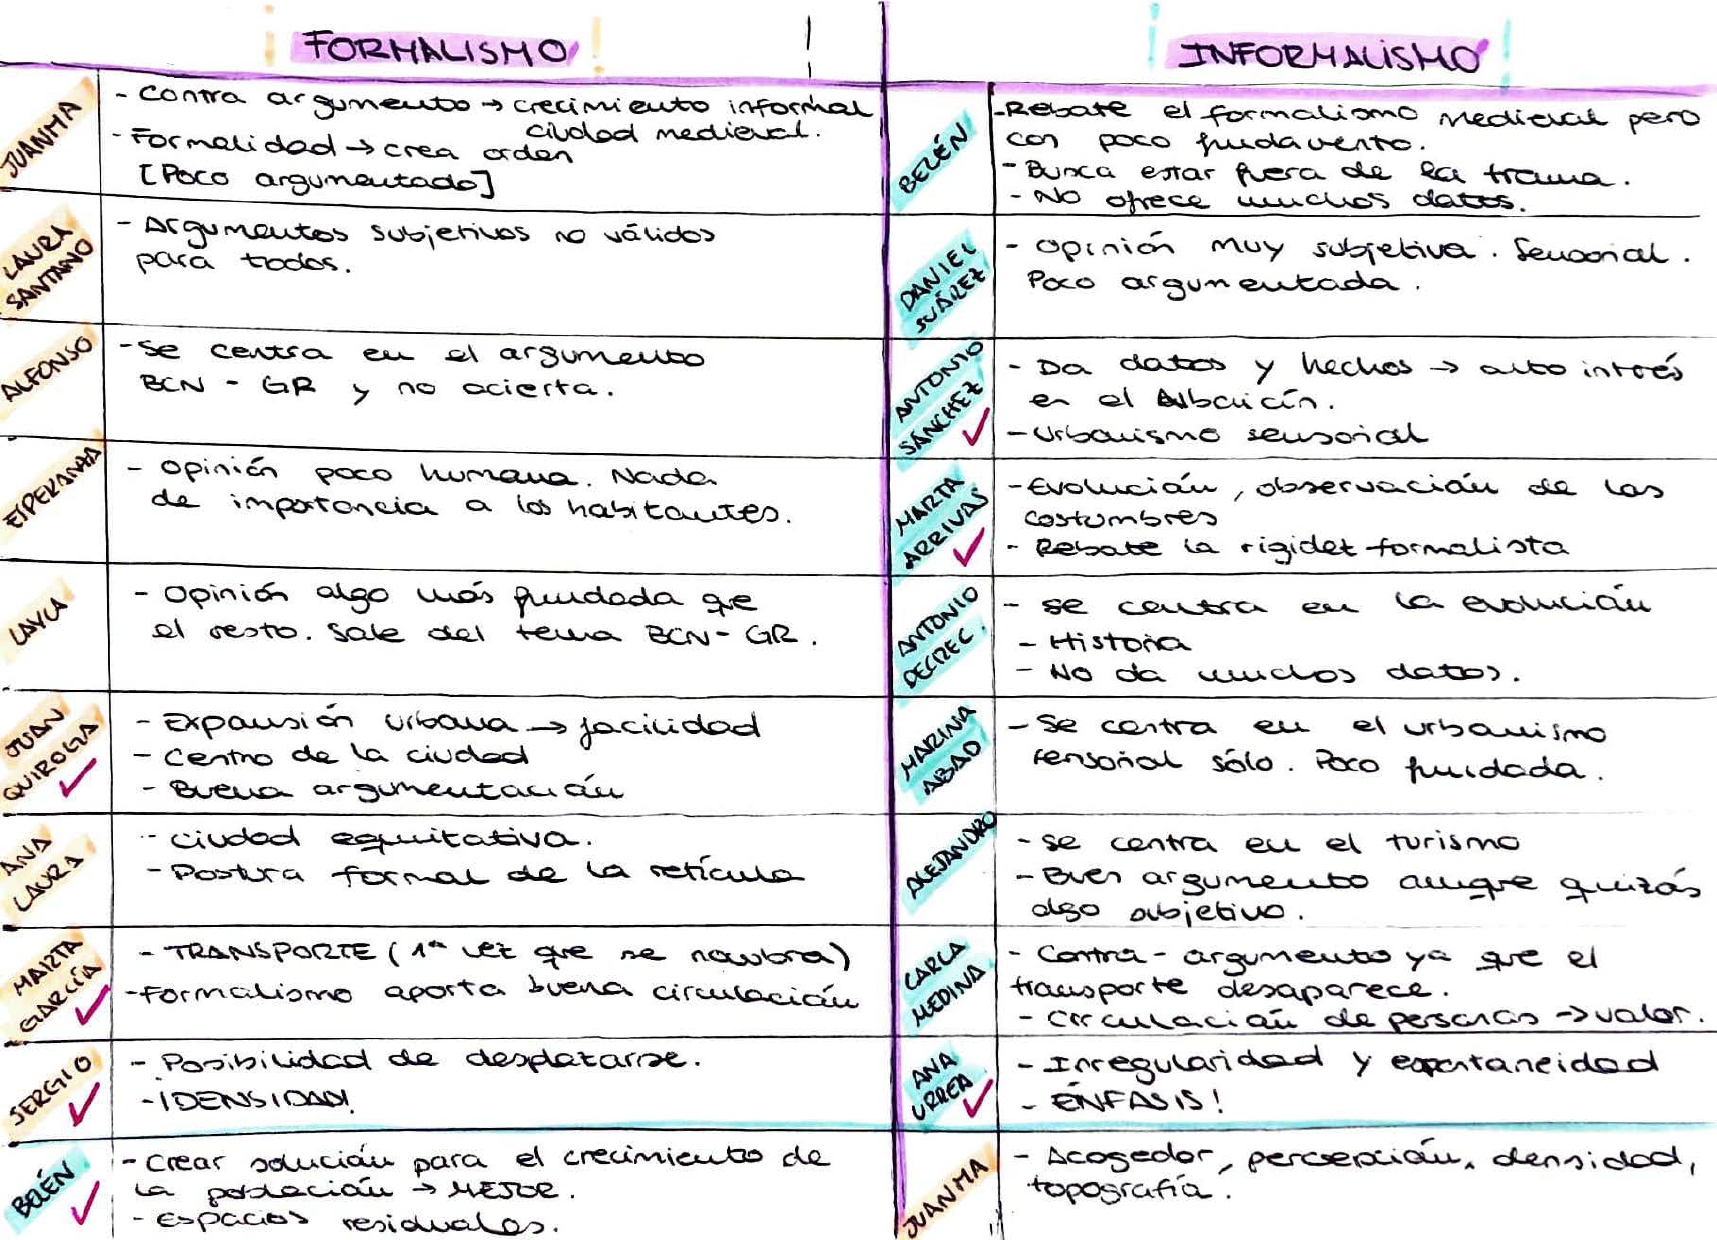 FORMALISMO
JUANMA
- Contra argumento → crecimiento informal
ciudad medieval.
- Formalidad → crea orden
[Poco argumentado]
LAURA
SANTANO
- Argumentos subjetivos no válidos
para todos.
ALFONSO
- Se centra en el argumento
BCN - GR y no acierta.
ESPERANZA
- Opinión poco humana. Nada
de importancia a los habitantes.
LAYLA
- Opinión algo más fundada que
el resto. Sale del tema BCN - GR.
JUAN
QUIROGA ✓
- Expansión urbana → facilidad
- Centro de la ciudad
- Buena argumentación
ANA
LAURA
- Ciudad equitativa.
- Postura formal de la retícula
MARTA
GARCÍA ✓
- TRANSPORTE (1ª vez que se nombra)
- Formalismo aporta buena circulación
SERGIO ✓
- Posibilidad de desplazarse.
- ¡DENSIDAD!
BELÉN ✓
- Crear solución para el crecimiento de
la población → MEJOR.
- Espacios residuales.
INFORMALISMO
BELÉN
- Rebate el formalismo medieval pero
con poco fundamento.
- Busca estar fuera de la trama.
- No ofrece muchos datos.
DANIEL
SUÁREZ
- Opinión muy subjetiva. Sensorial.
Poco argumentada.
ANTONIO
SÁNCHEZ ✓
- Da datos y hechos → auto interés
en el Albaicín.
- Urbanismo sensorial
MARTA
ARRIVAS ✓
- Evolución, observación de las
costumbres
- Rebate la rigidez formalista
ANTONIO
- Se centra en la evolución
- Historia
- No da muchos datos.
MARINA
ABAD
- Se centra en el urbanismo
sensorial sólo. Poco fundada.
ALEJANDRO
- Se centra en el turismo
- Buen argumento aunque quizás
algo subjetivo.
CARLA
MEDINA
- Contra-argumento ya que el
transporte desaparece.
- Circulación de personas → valor.
ANA
URREA ✓
- Irregularidad y espontaneidad
- ÉNFASIS!
JUANMA
- Acogedor, percepción, densidad,
topografía.